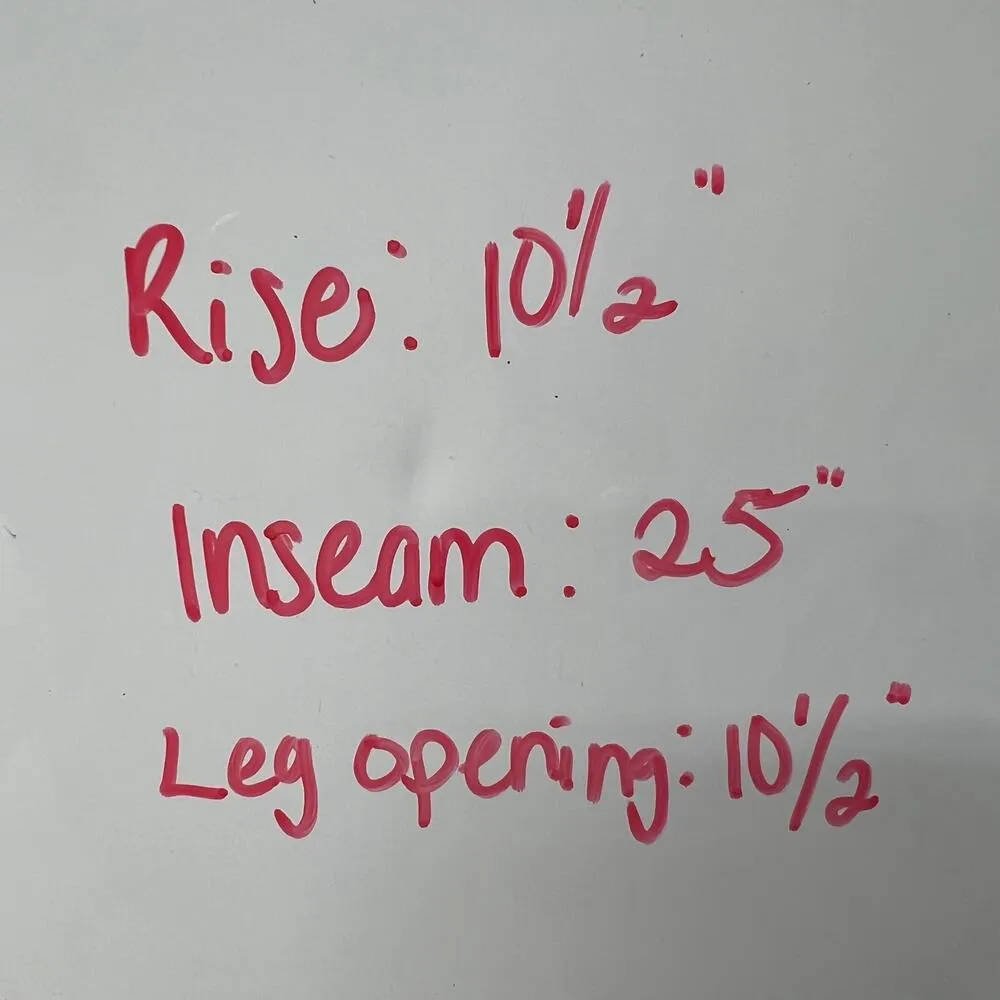 Rise: 10 1/2"
Inseam: 25"
Leg opening: 10 1/2"